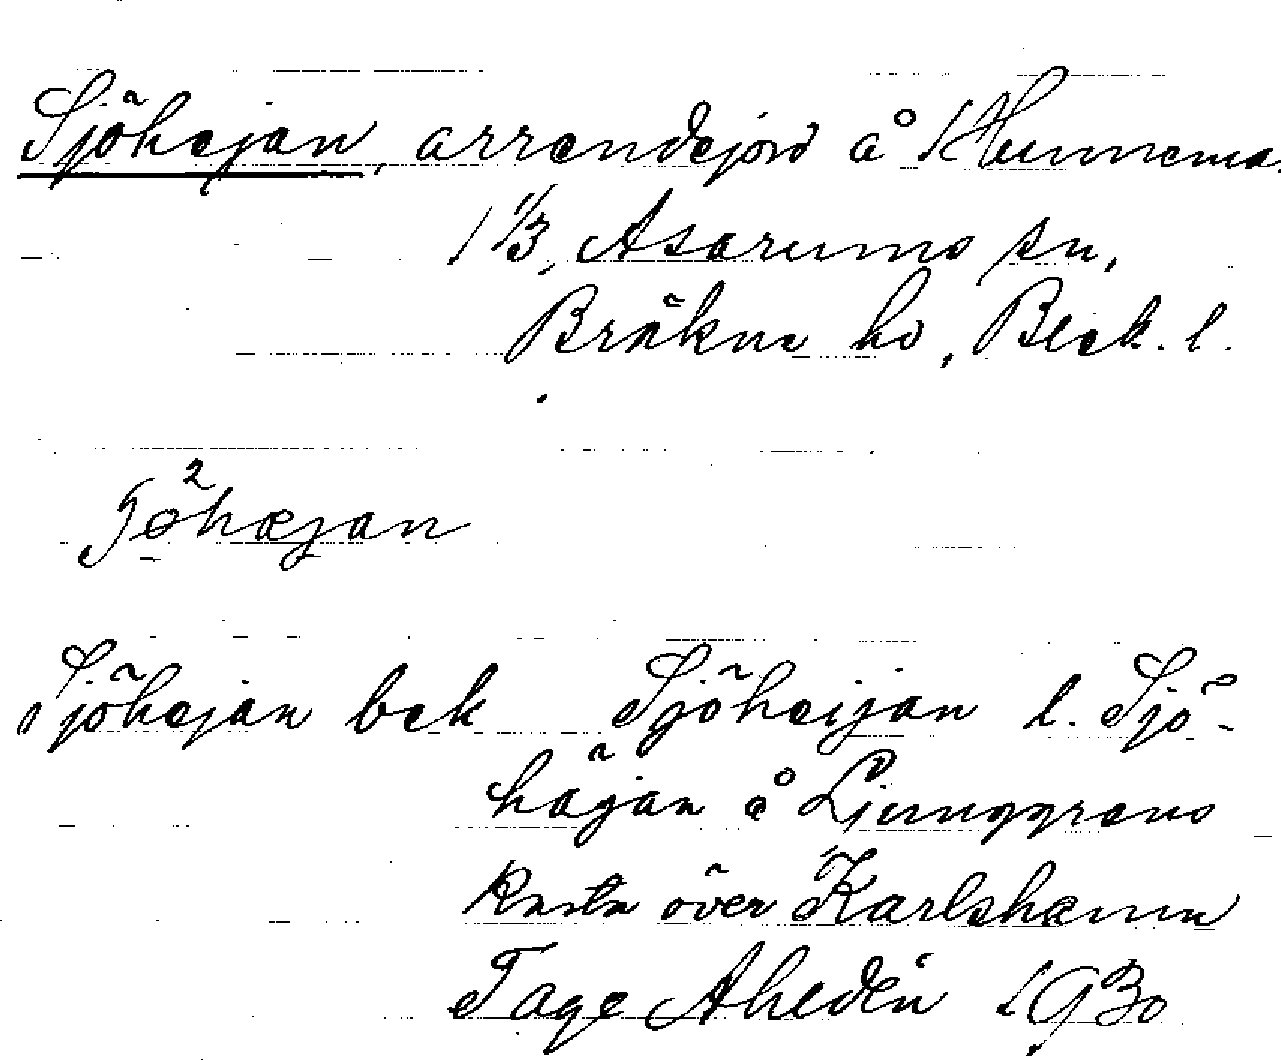 Sjöhejan, arrendejord å Hunnema.
1 1/3, Asarums sn,
Bräkne hd, Blek. l.
Sjöhejan bek Sjöheijan l. Sjö-
häjan å Ljunggrens
Karta över Karlshamn
Tage Ahldén 1930